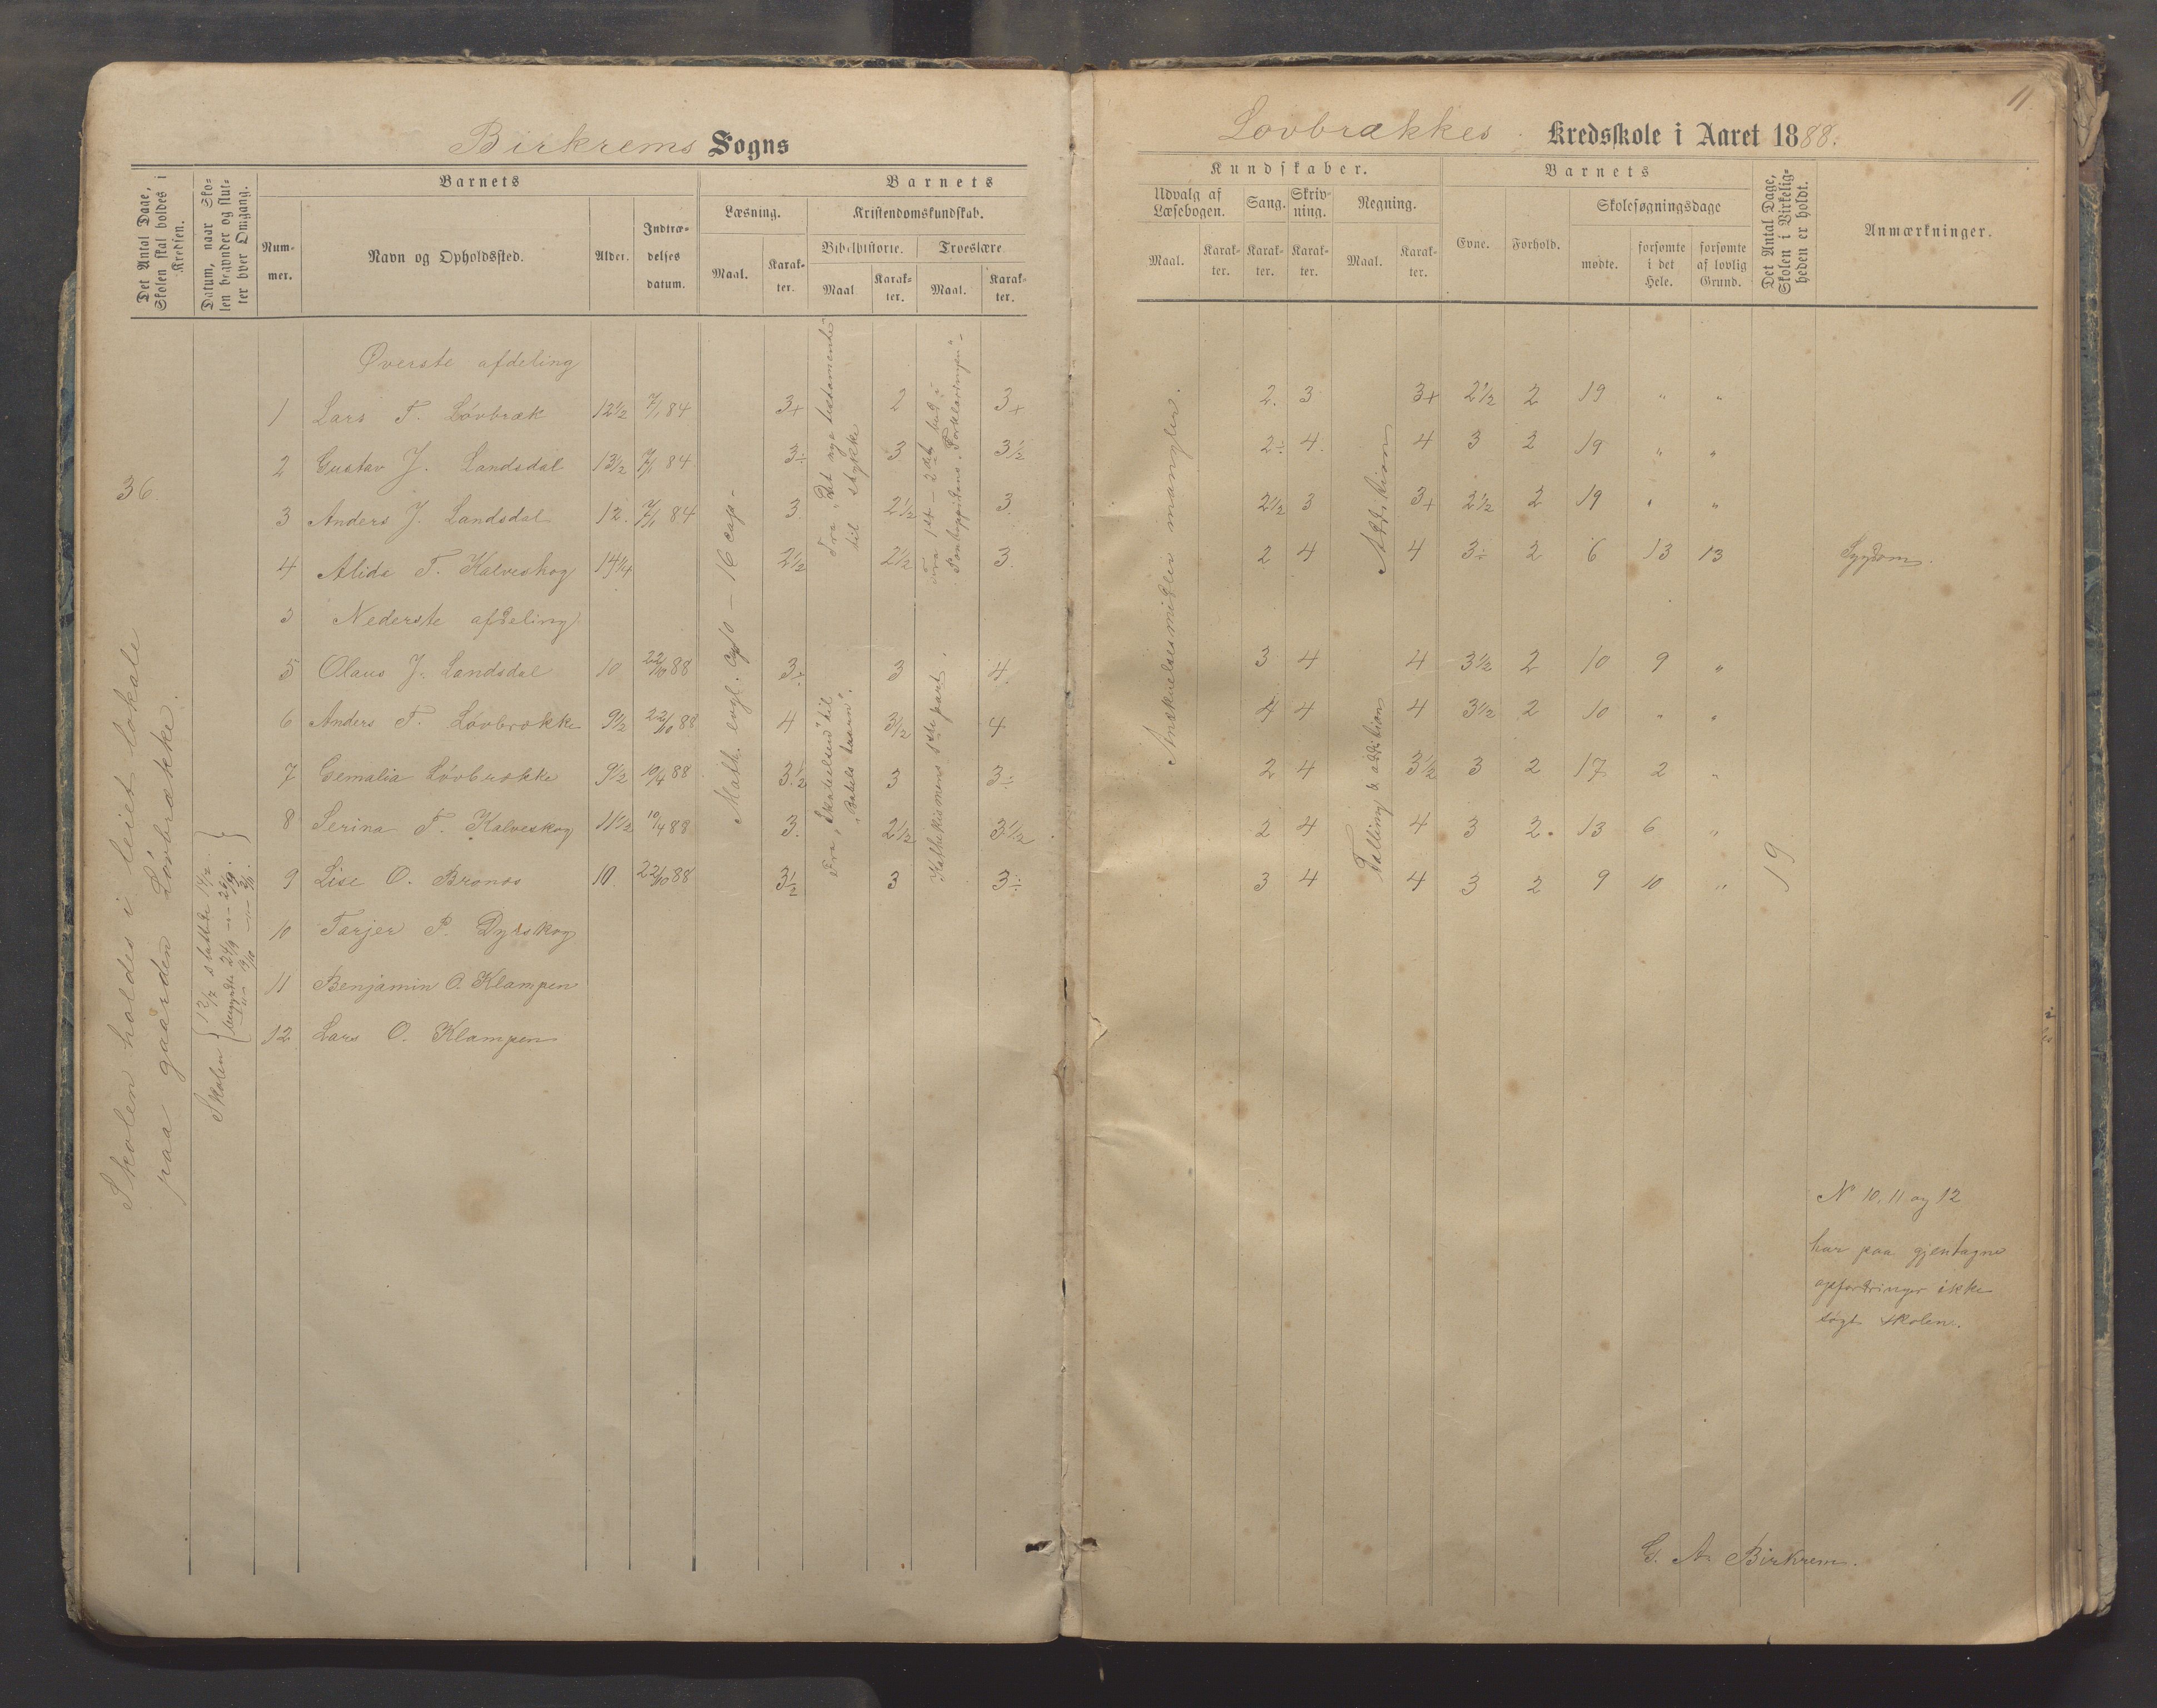 Birkrems Sogns
Det Antal Dage, Skolen skal holdes i Kredsen.
Datum, naar Skolen begynder og slutter hver Omgang.
Barnets
Nummer.
Navn og Opholdssted.
Alder.
Indtrædelses datum.
Barnets
Læsning.
Maal.
Karakter.
Kristendomskundskab.
Bibelhistorie.
Maal.
Karakter.
Troeslære.
Maal.
Karakter.
36.
Skolen holdes i leiet lokale
paa gaarden Lövbrække.
Skolen
12/7 sluttde 14/7.
begyndte 24/9 — 29/9.
Øverste afdeling
1 Lars T. Lövbræk 12 1/2 7/1 84 3+ 2 3+
2 Gustav J. Landsdal 13 1/2 7/1 84 3÷ 3 3 1/2
3 Anders J. Landsdal 12. 7/1 84 3 2 1/2 3.
4 Alida T. Kalveskog 14 1/4 2 1/2 2 1/2 3.
Nederste afdeling
5 Olaus J. Landsdal 10 22/10 88 3÷ 3 4.
6 Anders T. Lövbrække 9 1/2 22/10 88 4 3 1/2 4
7 Gemalia Lövbrække 9 1/2 10/4 88 3 1/2 3 3÷
8 Serina T. Kalveskog 11 1/2 10/4 88 3. 2 1/2 3 1/2
9 Lise O. Bronos 10. 22/10 88 3 1/2 3 3÷
10 Tarjer P. Dyrskog
11 Benjamin O. Klampen
12 Lars O. Klampen
Math. evgl. cap 10 – 16 cap –
Fra „Det nye testamente"
til stykke
Fra 1st – 2det bud i
Pontoppidans „Forklaringen" –
Fra „Skabelsen" til
„Babels taarn".
Kathekismens 1ste part.
Lovbrækkes Kredsskole i Aaret 1888.
11.
Kundskaber.
Udvalg af Læsebogen.
Maal.
Karakter.
Sang.
Karakter.
Skrivning.
Karakter.
Regning.
Maal.
Karakter.
Barnets
Evne.
Forhold.
Skolesøgningsdage
mødte.
forsømte i det Hele.
forsømte af lovlig Grund.
Det Antal Dage, Skolen i Virkeligheden er holdt.
Anmærkninger.
Anskuelsesmidler mangler.
Addition
Tælling & addition
2. 3 3+ 2 1/2 2 19 " "
2÷ 4. 4 3 2 19 " "
2 1/2 3 3+ 2 1/2 2 19 " "
2 4 4 3÷ 2 6 13 13 Sygdom.
3 4 4 3 1/2 2 10 9 "
4 4 4 3 1/2 2 10 " "
2 4 3 1/2 3 2 17 2 "
2 4 4 3 2. 13 6 "
3 4 4 3 2 9 10 "
19
N° 10, 11 og 12
har paa gjentagne
opfordringer ikke
søgt skolen.
G. A. Birkrem.